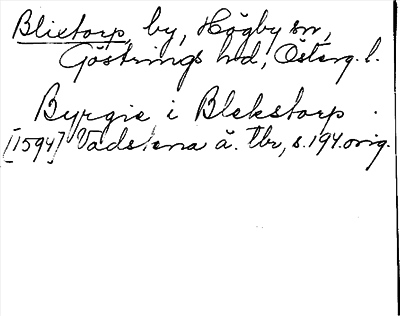 Blixtorp, by, Högby sn,
Göstrings hd, Österg. l.
Byrgie i Blekstorp.
[1594] Vadstena ä. Tbr, s. 194. orig.